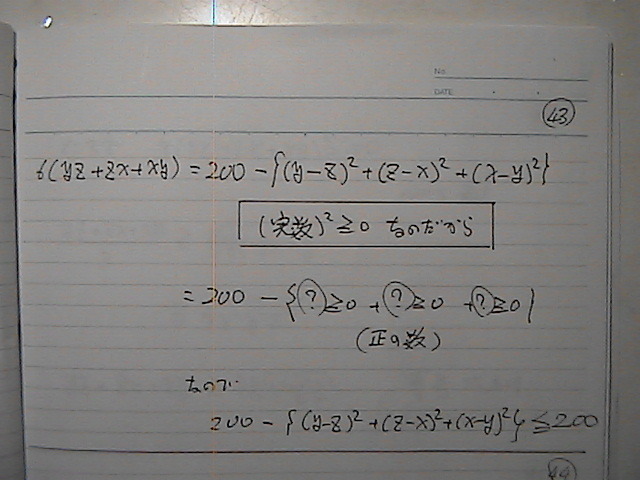 No.
DATE
43
6(yz+zx+xy)=200-{(y-z)²+(z-x)²+(x-y)²}
(実数)²≧0 なのだから
=200-{(?)≧0+(?)≧0+(?)≧0}
(正の数)
なので
200-{(y-z)²+(z-x)²+(x-y)²}≦200
44